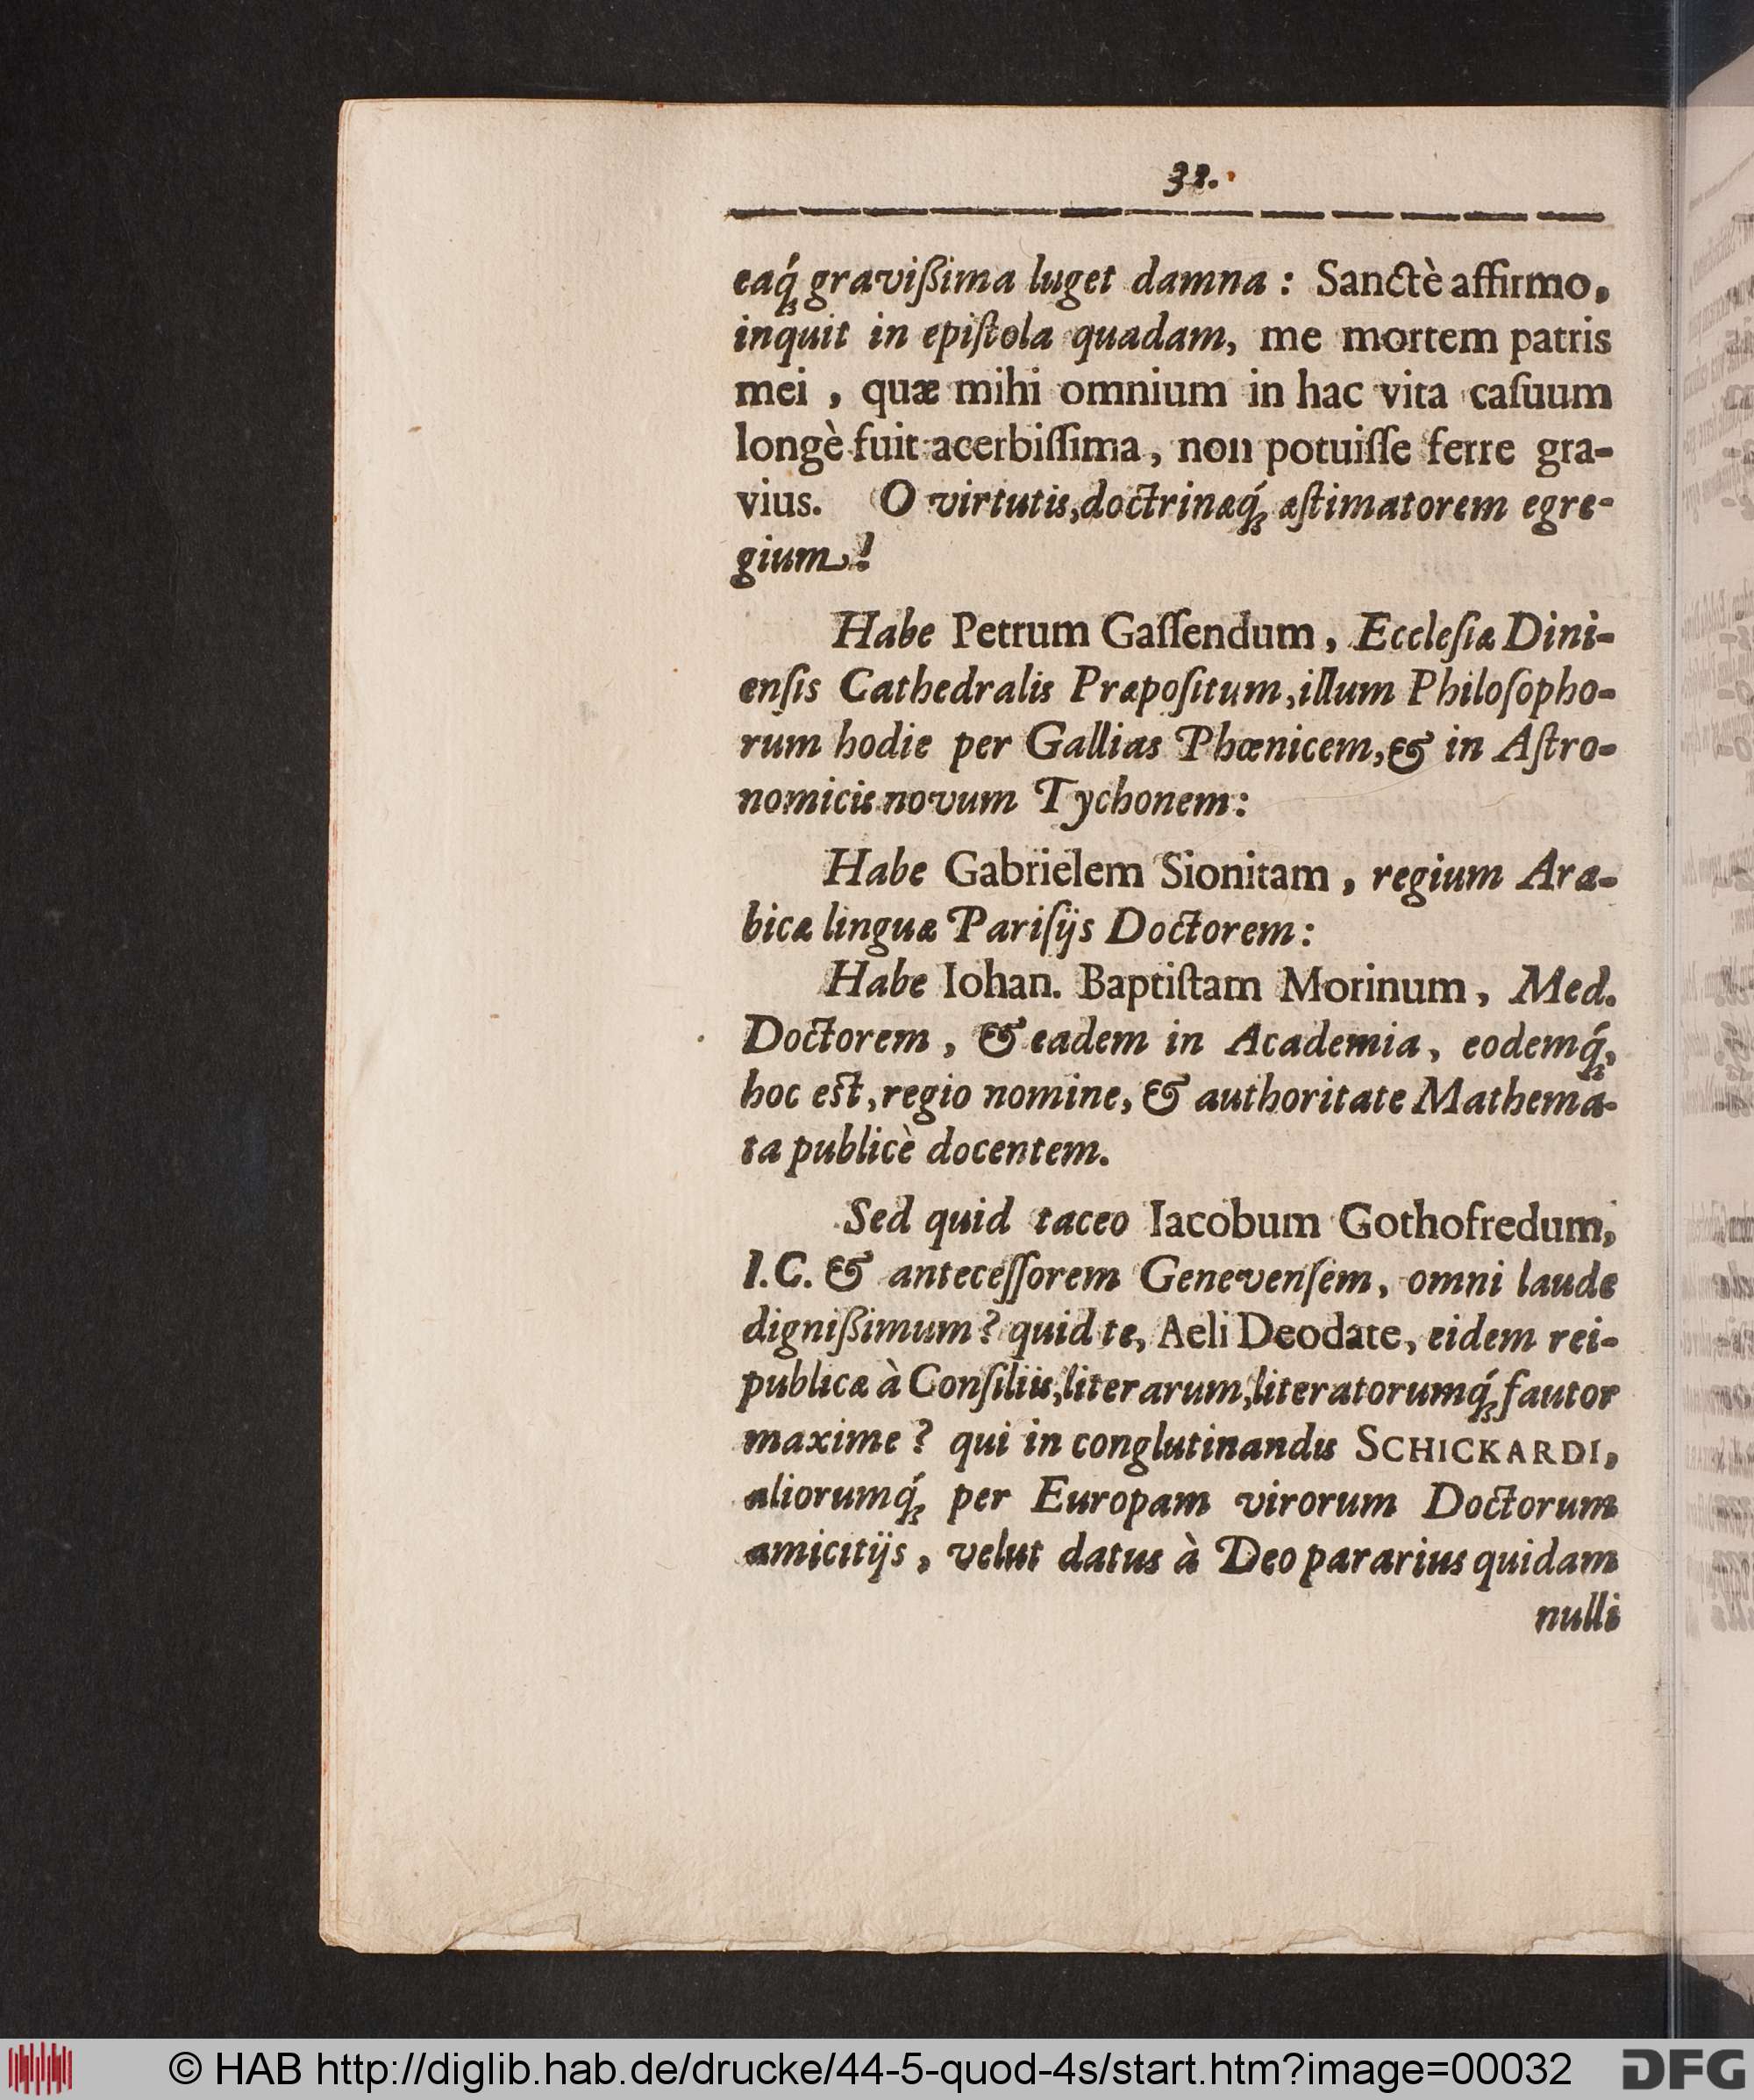 32.
eaq́ꝫ graviſſima luget damna : Sanctè affirmo,
inquit in epiſtola quadam, me mortem patris
mei , quæ mihi omnium in hac vita caſuum
longè fuit acerbiſſima, non potuiſſe ferre gra-
vius. O virtutis, doctrinæq́ꝫ æſtimatorem egre-
gium!
Habe Petrum Gaſſendum, Eccleſiæ Dini-
enſis Cathedralis Præpoſitum, illum Philoſopho-
rum hodie per Gallias Phœnicem, & in Aſtro-
nomicis novum Tychonem:
Habe Gabrielem Sionitam, regium Ara-
bicæ linguæ Pariſijs Doctorem:
Habe Iohan. Baptiſtam Morinum, Med.
Doctorem, & eadem in Academia, eodemq́ꝫ,
hoc eſt, regio nomine, & authoritate Mathema-
ta publicè docentem.
Sed quid taceo Iacobum Gothofredum,
I.C. & anteceſſorem Genevenſem, omni laude
digniſſimum? quid te, Aeli Deodate, eidem rei-
publicæ à Conſiliis, literarum, literatorumq́ꝫ fautor
maxime? qui in conglutinandis SCHICKARDI,
aliorumq́ꝫ per Europam virorum Doctorum
amicitijs, velut datus à Deo pararius quidam
nulli
© HAB http://diglib.hab.de/drucke/44-5-quod-4s/start.htm?image=00032
DFG